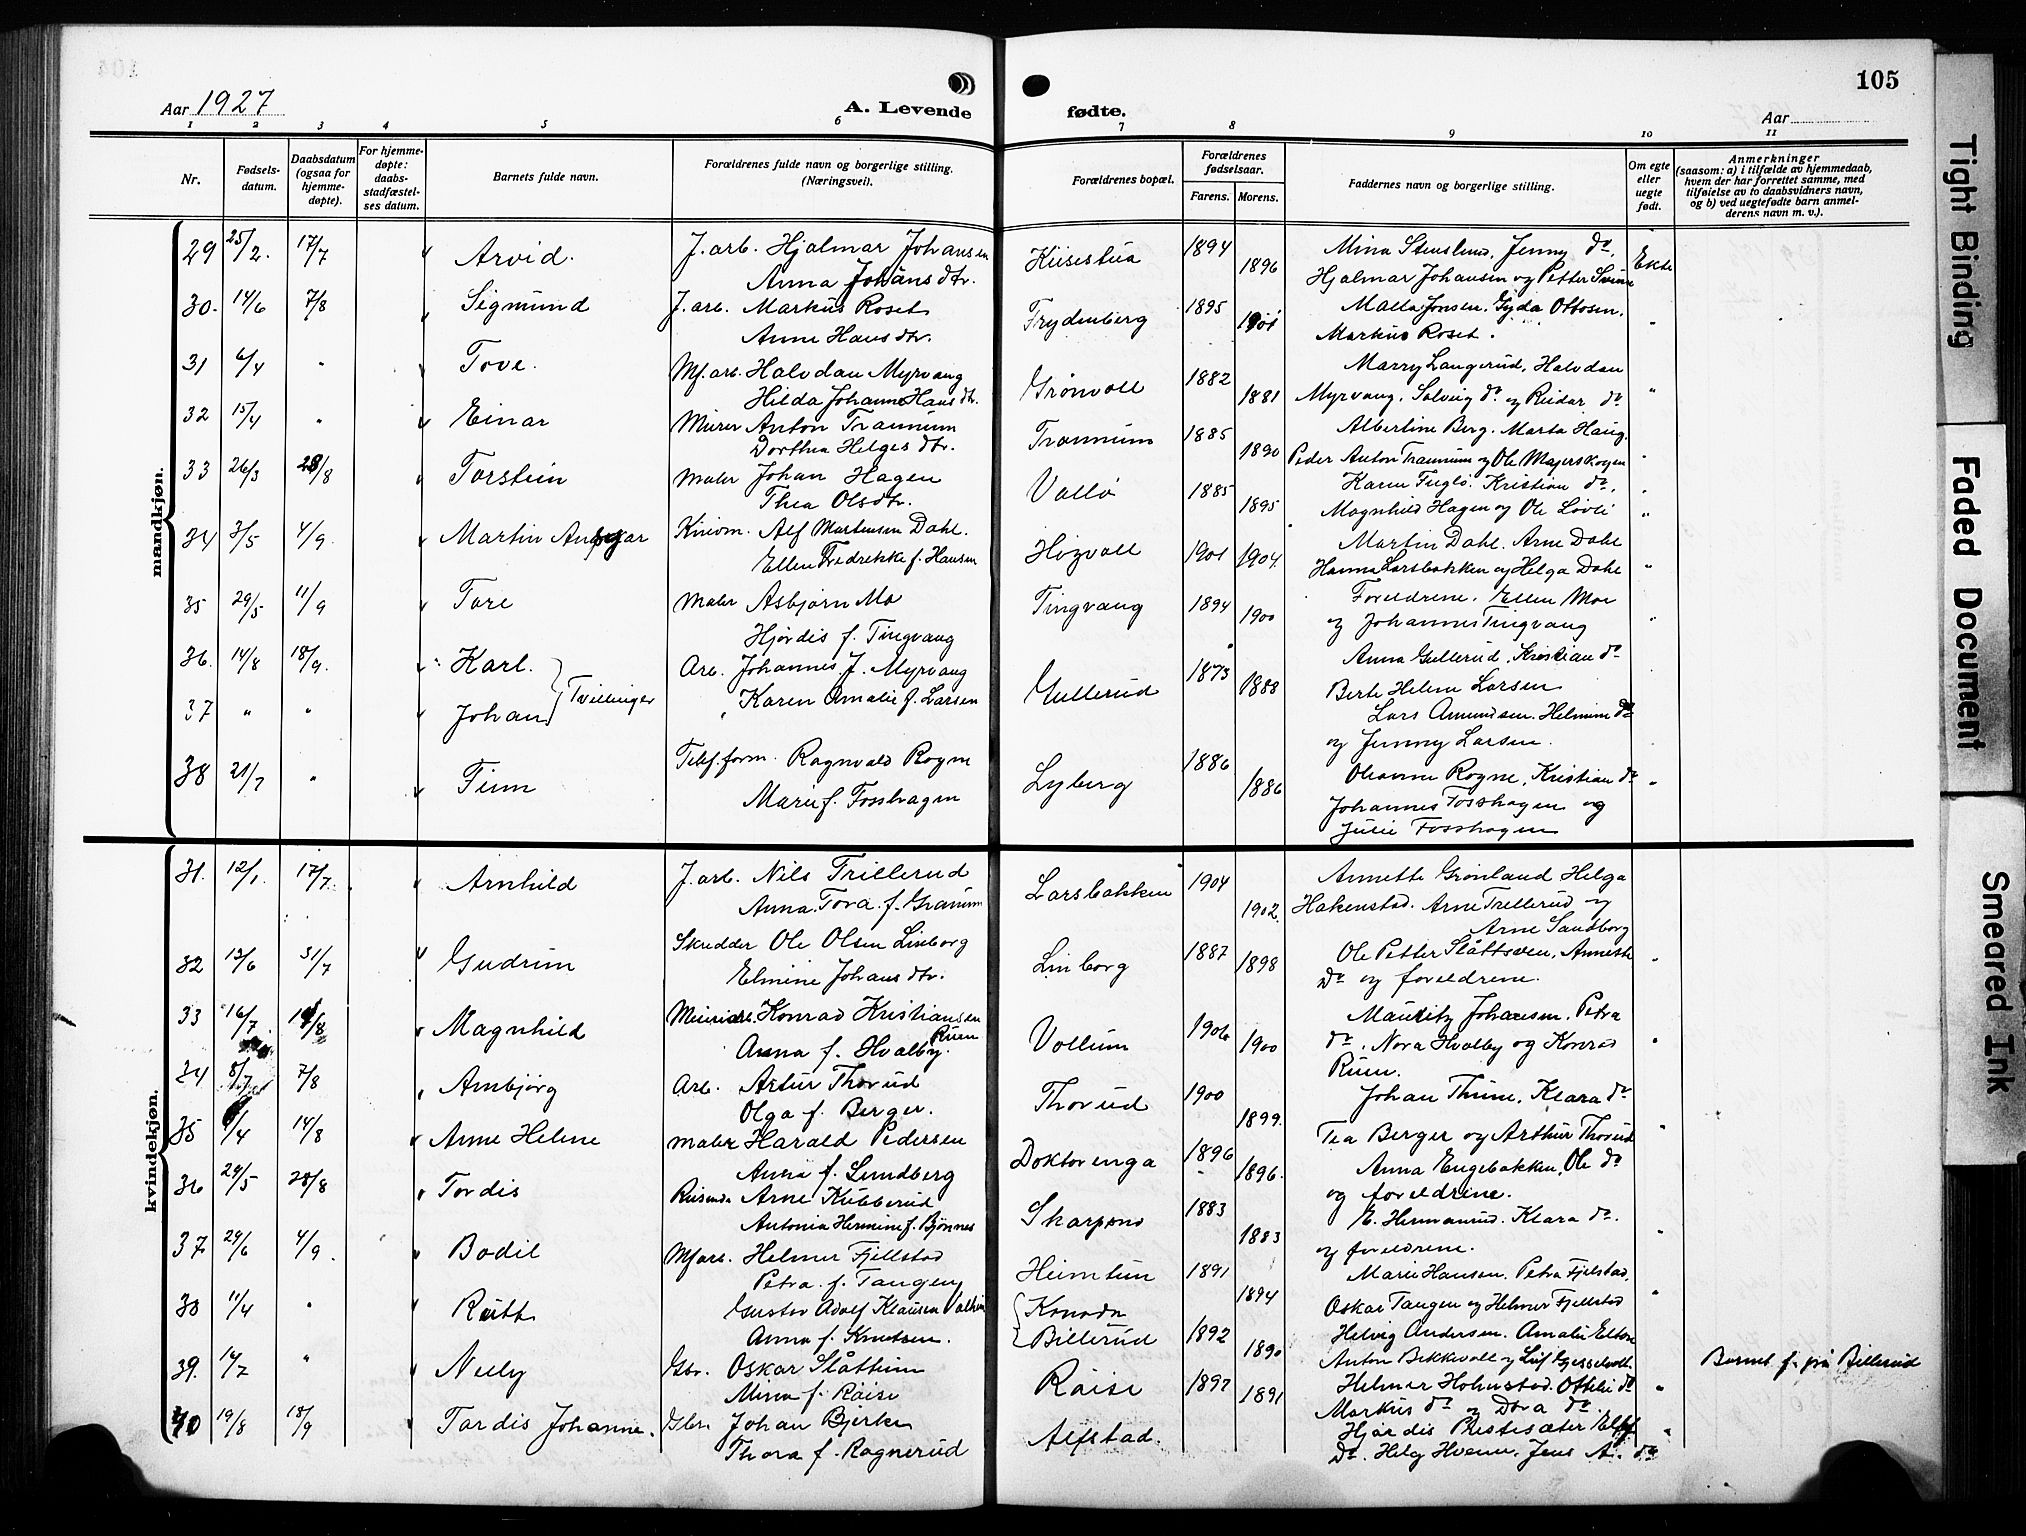 105
Aar 1927
A. Levende
fødte.
Aar
1 2 3 4 5 6 7 8 9 10 11
Nr.
Fødsels-
datum.
Daabsdatum
(ogsaa for
hjemme-
døpte).
For hjemme-
døpte:
daabs-
stadfæstel-
ses datum.
Barnets fulde navn.
Forældrenes fulde navn og borgerlige stilling.
(Næringsvei).
Forældrenes bopæl.
Forældrenes
fødselsaar.
Farens. Morens.
Faddernes navn og borgerlige stilling.
Om egte
eller
uegte
født.
Anmerkninger
(saasom: a) i tilfælde av hjemmedaab,
hvem der har forrettet samme, med
tilføielse av to daabsvidners navn,
og b) ved uegtefødte barn anmel-
derens navn m. v.).
mandkjøn.
29 25/2. 17/7 Arvid. J. arb. Hjalmar Johansen 1894 Mina Stenslund, Jenny do. Ekte
Anna Johansdtr. 1896 Hjalmar Johansen og Petter
30. 14/6 7/8 Sigmund J. arb. Markus Roset Frydenberg 1895 Malla Jonsen. Gyda Ottosen. "
Anne Hansdtr. 1901 Markus Roset.
31 6/4 " Tove. Mf. arb. Halvdan Myrvang Grønvoll 1882 Marry Langerud, Halvdan "
Hilda Johanne Hansdtr. 1881 Myrvang. Solveig do og Reidar do
32 15/4 " Einar Murer Anton Trannum Trannum 1885 Albertine Berg. Marta Haug.
Dorthea Helgesdtr. 1890 Peder Anton Trannum og Ole Majerskogen "
33 26/3 28/8 Torstein Maler Johan Hagen Vollø 1885 Karen Fuglø. Kristian do. "
Thea Olsdtr. 1895 Magnhild Hagen og Ole Løvli "
34 3/5 4/9 Martin Ansgar Alf Martinsen Dahl. Høgvoll 1901 1904 Martin Dahl. Arne Dahl
Ellen Fredrekke f. Hansen Hanna Larsbakken og Helga Dahl "
35 29/5 11/9 Tore Maler Asbjørn Mo Tingvang 1894 Foreldrene. Ellen Moe
Hjørdis f. Tingvang 1900 og Johannes Tingvang "
36. 14/8 18/9. Karl. Arb. Johannes J. Myrvang Gullerud 1873 Anna Gullerud, Kristian do
Tvillinger Karen Amalie f. Larsen 1888 Berte Helene Larsen
37 " " Johan Lars Amundsen. Helmine do
og Jenny Larsen.
38 21/7 " Finn Telef. form. Ragnvald Rogne Lyberg 1886 Oleanne Rogne, Kristian do "
Marie f. Fosshagen 1886 Johannes Fosshagen og
Julie Fosshagen
kvindekjøn.
31. 12/1. 17/7. Arnhild J. arb. Nils Trillerud Larsbakken 1904 Annette Grønland Helga
Anna Tora f. Granum 1902. Hakenstad. Arne Trillerud og
Arne Sandborg
32 13/6 31/7 Gudrun Skredder Ole Olsen Linborg Linborg 1887 Ole Petter Slåttsveen, Annette "
Elmine Johansdtr. 1898 do og foreldrene.
33 16/7 14/8 Magnhild Konrad Kristiansen Vollum 1906 Mauritz Johansen. Petra
Ruen
Anna f. Hvalby. 1900 do. Nora Hvalby og Konrad "
Ruen.
34 8/7 7/8 Arnbjørg Arb. Artur Thorud Thorud 1900 Johan Thune, Klara do
Olga f. Berger. 1899. Tea Berger og Arthur Thorud "
35 /4 14/8 Anne Helene Maler Harald Pedersen Doktorenga 1896 Anna Engebakken, Ole do
Anna f. Lundberg 1896. og foreldrene.
36 29/5 28/8 Tordis Reisende Arne Kubberud Skarpsno 1883 E. Hermanrud. Klara do.
Antonia Hermine f. Bjønnes 1883 og foreldrene. "
37 29/6 4/9. Bodil Mf arb. Helmer Fjellstad Heimtun 1891 Marie Hansen. Petra Fjelstad.
Petra f. Tangen 1894 Oskar Tangen og Helmer Fjellstad "
38 11/4 " Ruth Gustav Adolf Klausen Kanada 1892 Helvig Andersen. Amalie Elton
Anna f. Knutsen. Billerud 1890 Anton Bekkevoll og Leif Gjesselvoll.
Barnet f. på Billerud
39. 14/7 " Nelly Gbr. Oskar Slåttum Raise 1897 Helmer Holmstad. Ottilie do "
Mina f. Raise 1891 Markus do og Dora do.
40 19/8 18/9 Tordis Johanne. Gbr. Johan Bjerke Alfstad. Hjørdis Prestesæter "
Thora f. Ragnerud do. Helg Hvenn. Jens A. do
Tight Binding
Faded Document
Smeared Ink